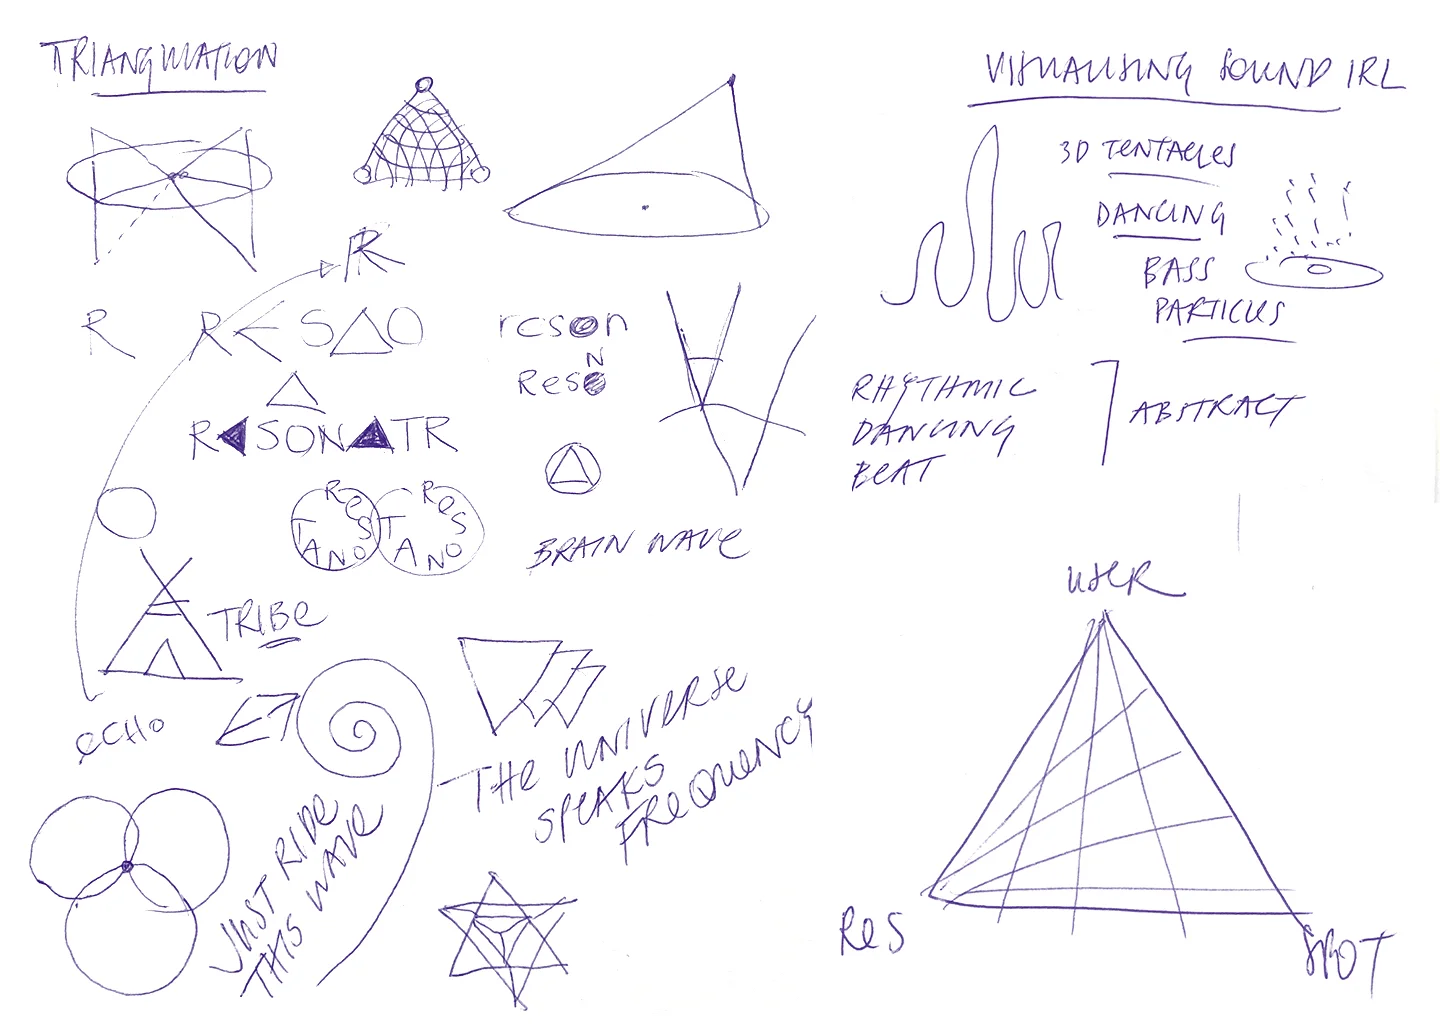 TRIANGULATION
VISUALISING SOUND IRL
3D TENTACLES
DANCING
BASS
PARTICLES
R
R
R<S△O
reson
N
Reso
△
R◀SON▲TR
RHYTHMIC
DANCING
BEAT
ABSTRACT
ResONAT
ResONAT
BRAIN WAVE
TRIBe
eCHO
THe UNIVERSe
SPeAKS
FReQUeNCY
JUST RIDe
THIS WAVe
USeR
ReS
SPOT